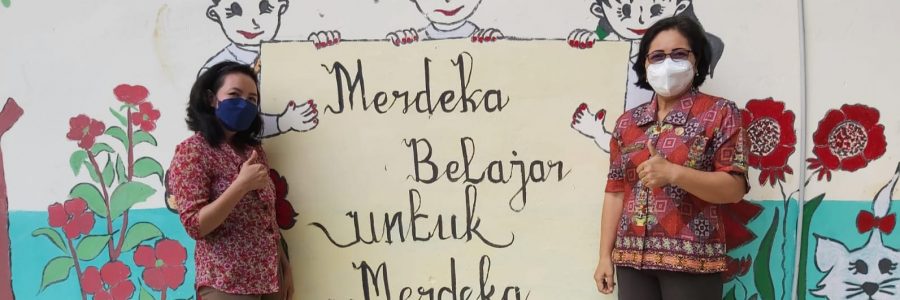 Merdeka
Belajar
untuk
Merdeka